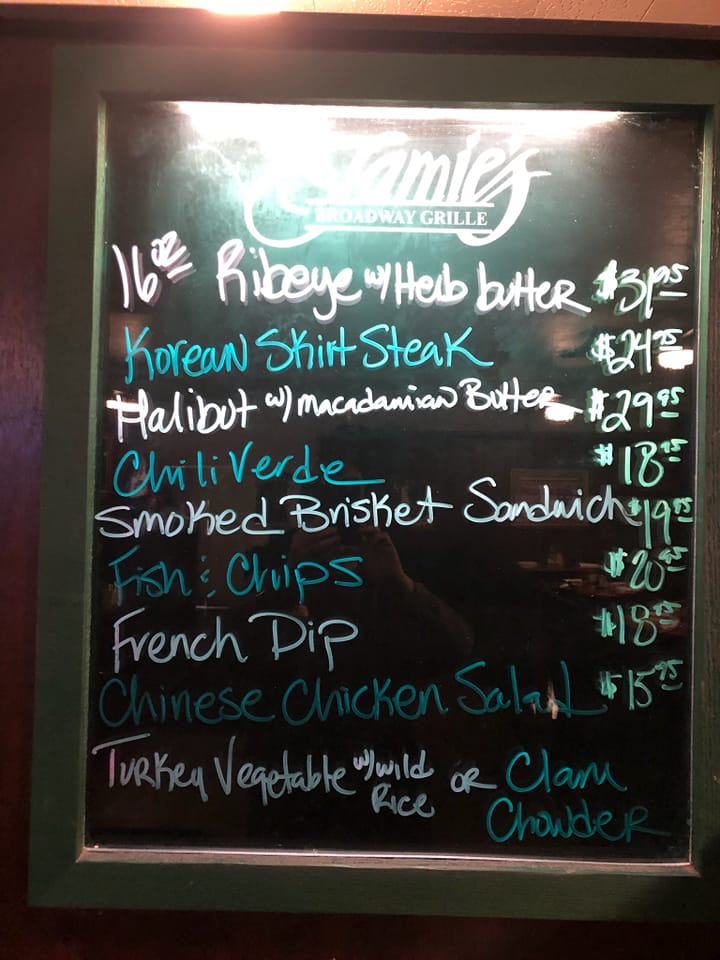 Jamie's
BROADWAY GRILLE
16oz Ribeye w/ Herb butter $31.95
Korean Skirt Steak $24.95
Halibut w/ macadamian Butter $29.95
Chili Verde $18.95
Smoked Brisket Sandwich $19.95
Fish & Chips $20.95
French Dip $18.95
Chinese Chicken Salad $15.95
Turkey Vegetable w/ wild Rice or Clam
Chowder